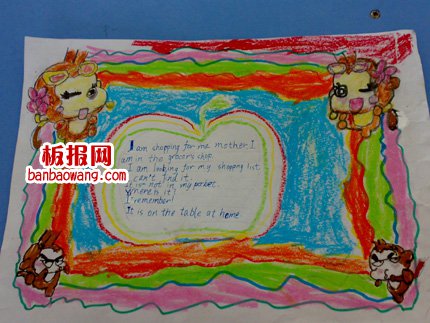 I am shopping for me mother. I
am in the grocer's shop.
I am looking for my shopping list.
I can't find it.
It is not in my pocket.
Where is it?
I remember!
It is on the table at home.
板报网
banbaowang.com